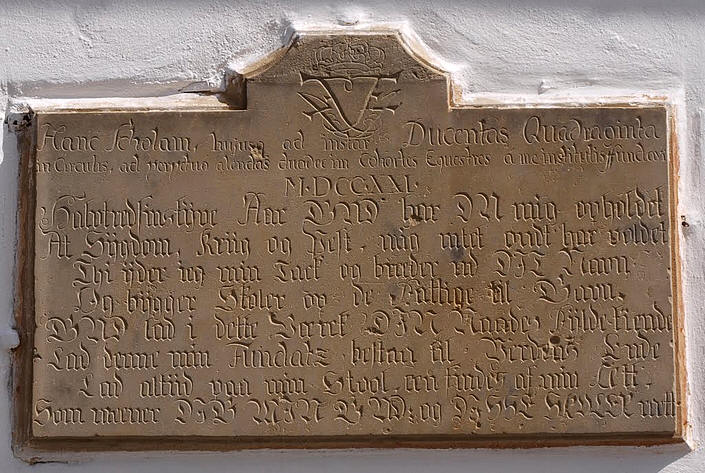 Hanc Scholam, hujus ad instar Ducentas Quadraginta
in Circulis, ad perpetuo alendas duodecim Cohortes Equestres a me institutis, fundavi
M·DCC·XXI·
Halvtredsinstÿve Aar GUD har DU mig opholdet
At Sÿgdom, Kriig og Pest, mig intet ondt har voldet
Thi ÿder ieg min Tack og breeder ud DIT Navn,
Og bÿgger Skoler op de Fattige til Gavn.
GUD lad i dette Verck DIN Naades Fÿlde kiende
Lad denne min Fundatz bestaa til Verdens Ende
Lad altiid paa min Stool een findes af min Æt.
Som meener DIG MIN GUD; og DISSE SKOLER rætt